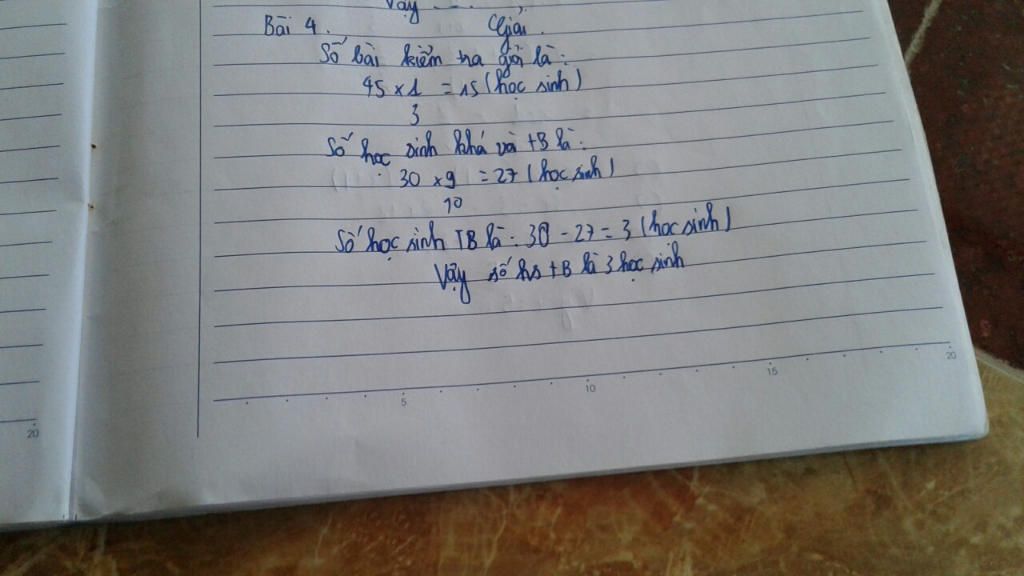 Vậy
Bài 4. Giải.
Số bài kiểm tra giỏi là:
45 x 1 = 15 (học sinh)
3
Số học sinh khá và TB là:
30 x 9 = 27 (học sinh)
10
Số học sinh TB là: 30 - 27 = 3 (học sinh)
Vậy số hs TB là 3 học sinh
5 10 15 20
20